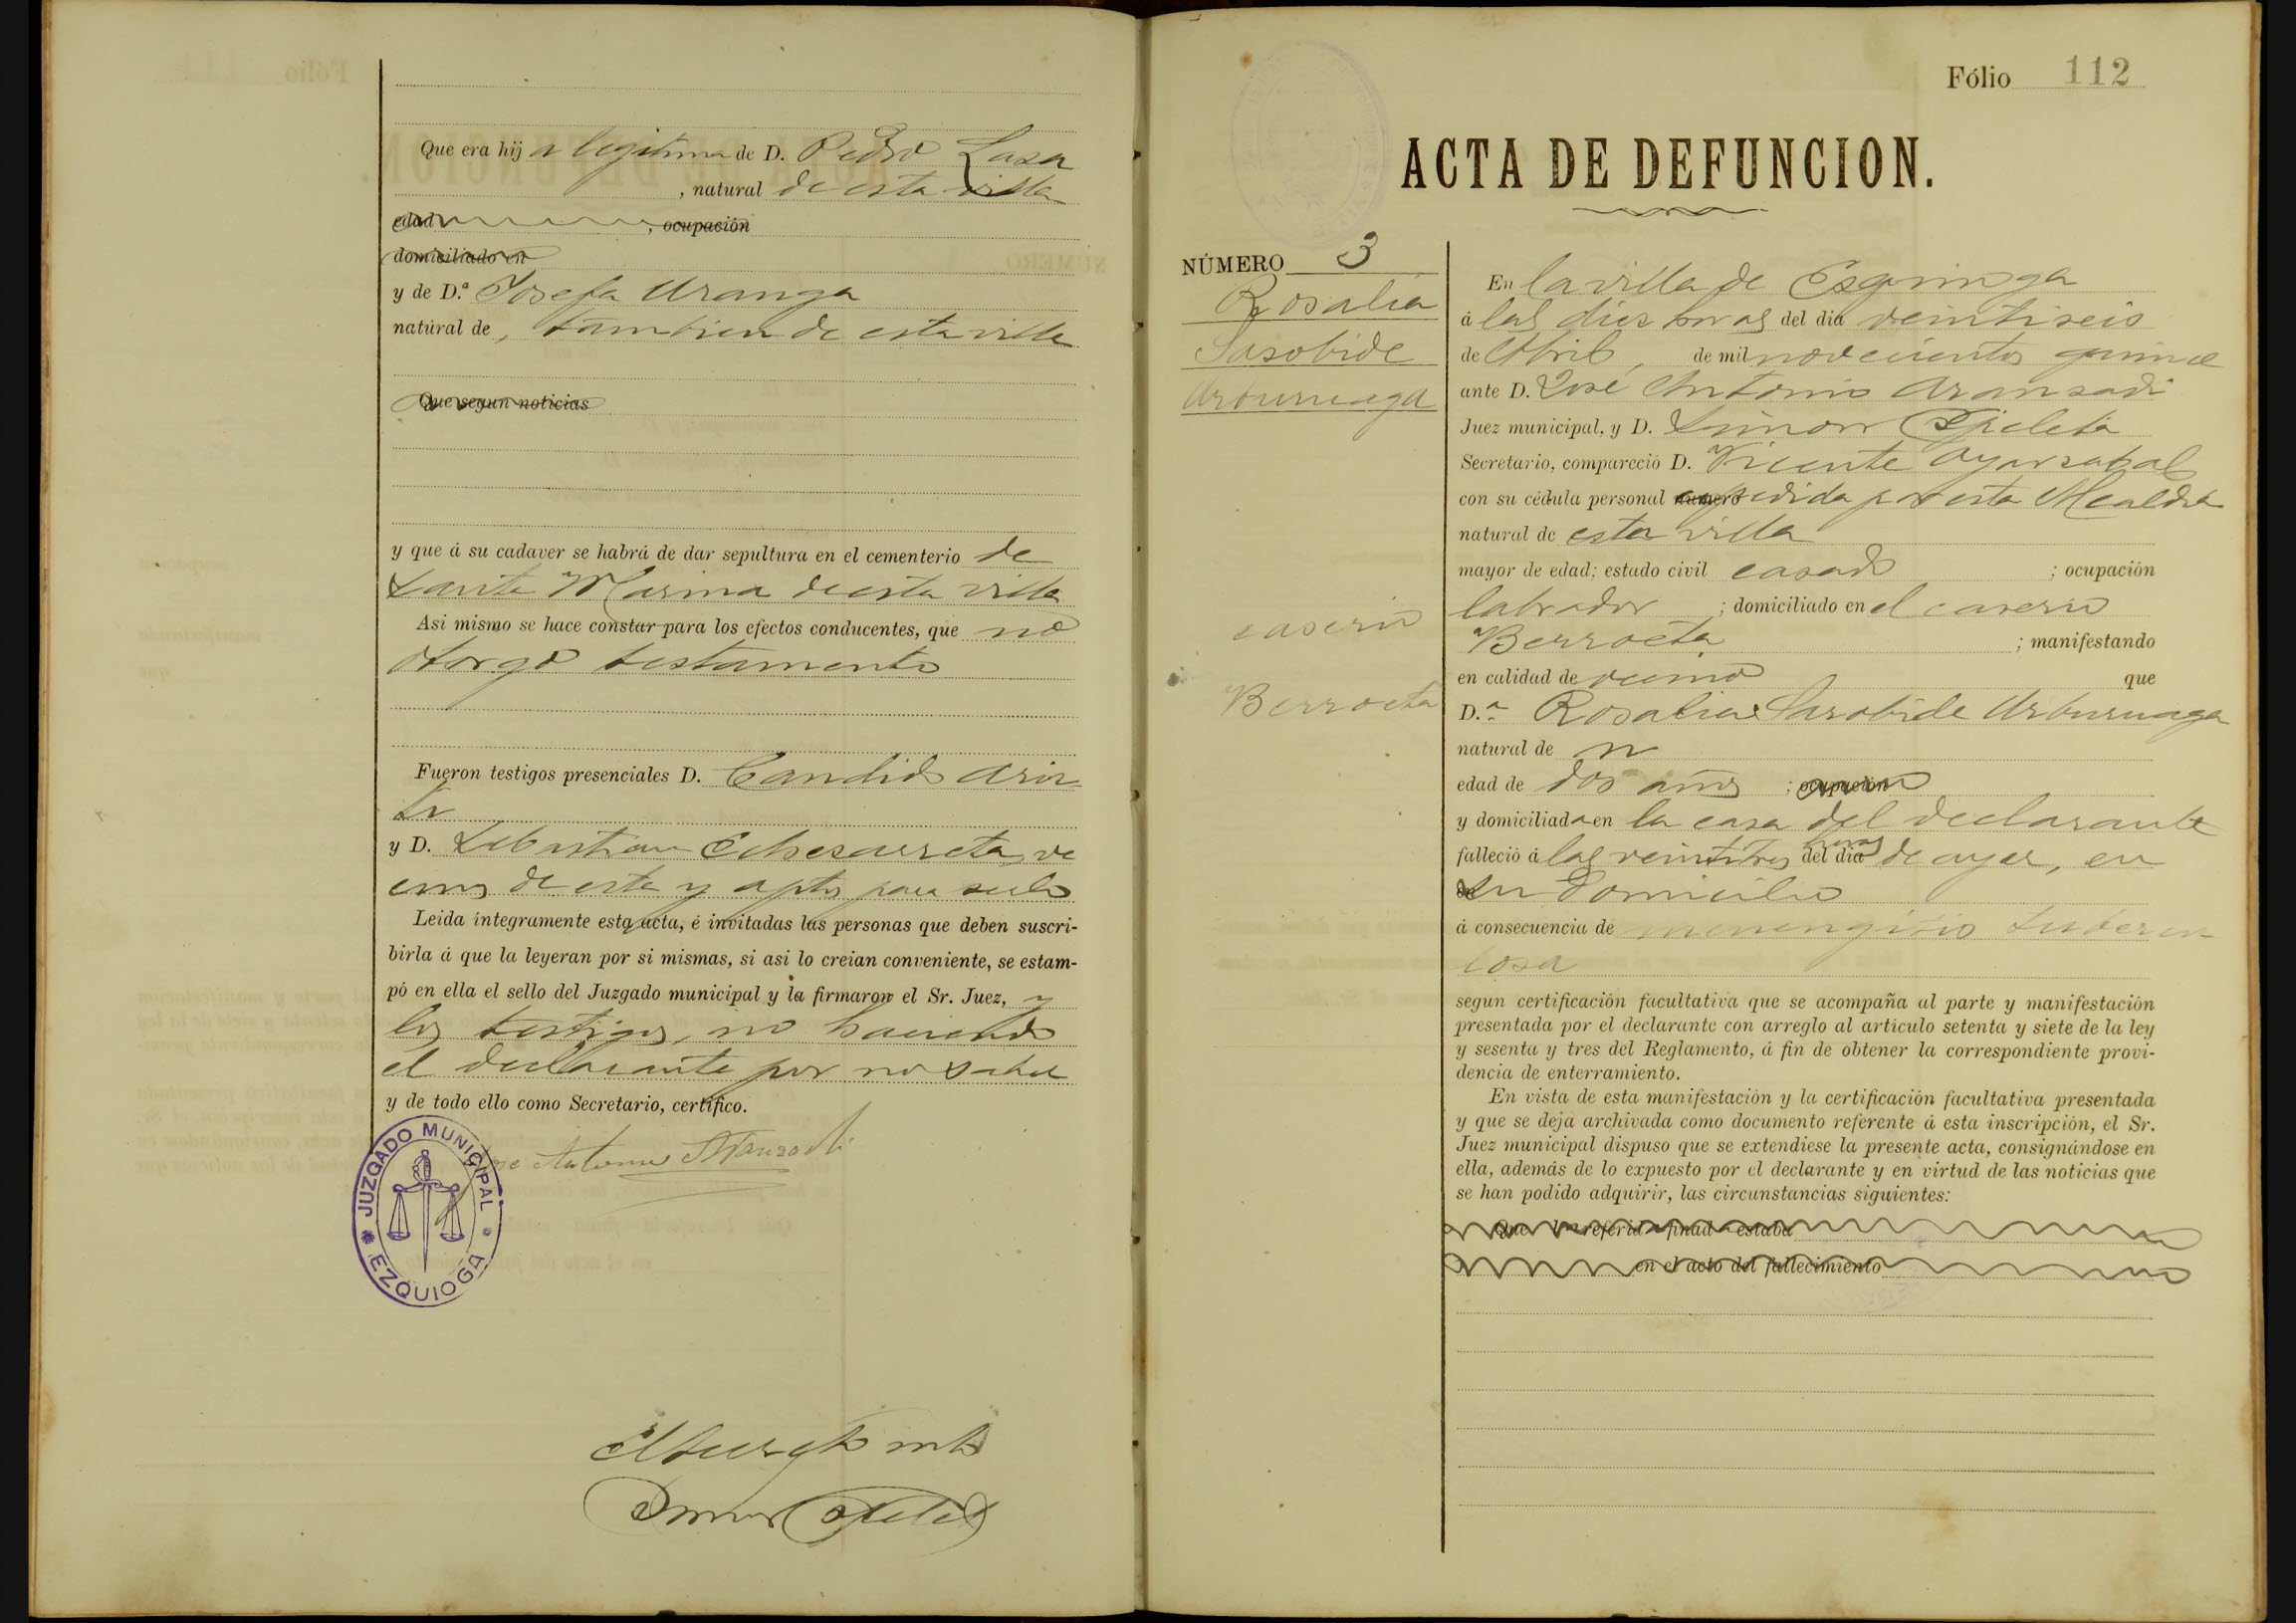 Que era hija legitima de D. Pedro Lasa
, natural de esta villa
edad , ocupación
domiciliado en
y de D.ª Josefa Aranga
natural de, tambien de esta villa
Que segun noticias
y que á su cadaver se habrá de dar sepultura en el cementerio de
Santa Marina de esta villa
Asi mismo se hace constar para los efectos conducentes, que no
otorgó testamento
Fueron testigos presenciales D. Candido
y D. Sebastian Echezarreta, ve
cinos de esta y aptos para serlo
Leida íntegramente esta acta, é invitadas las personas que deben suscri-
birla á que la leyeran por si mismas, si asi lo creian conveniente, se estam-
pó en ella el sello del Juzgado municipal y la firmaron el Sr. Juez, y
los testigos, no haciendo
el declarante por no saber
y de todo ello como Secretario, certifico.
Jose Antonio Aranzadi
JUZGADO MUNICIPAL
EZQUIOGA
Fólio 112
ACTA DE DEFUNCION.
NÚMERO 3
Rosalia
Sasobide
Urburuaga
caserio
Berroeta
En la villa de Esquioga
á las dies horas del dia veintiseis
de Abril, de mil novecientos quince
ante D. José Antonio Aransadi
Juez municipal, y D. Simon
Secretario, compareció D. Vicente Oyarzabal
con su cédula personal numero expedida por esta Alcaldia
natural de esta villa
mayor de edad; estado civil casado ; ocupación
labrador ; domiciliado en el caserio
Berroeta ; manifestando
en calidad de vecino que
D.ª Rosalia Sarobide Urburuaga
natural de
edad de dos años ; ocupación
y domiciliada en la casa del declarante
falleció á las veintitres horas del dia de ayer, en
su domicilio
á consecuencia de meningitis tubercu
losa
segun certificación facultativa que se acompaña al parte y manifestación
presentada por el declarante con arreglo al artículo setenta y siete de la ley
y sesenta y tres del Reglamento, á fin de obtener la correspondiente provi-
dencia de enterramiento.
En vista de esta manifestación y la certificación facultativa presentada
y que se deja archivada como documento referente á esta inscripción, el Sr.
Juez municipal dispuso que se extendiese la presente acta, consignándose en
ella, además de lo expuesto por el declarante y en virtud de las noticias que
se han podido adquirir, las circunstancias siguientes:
Que la referida finada estaba
en el acto del fallecimiento